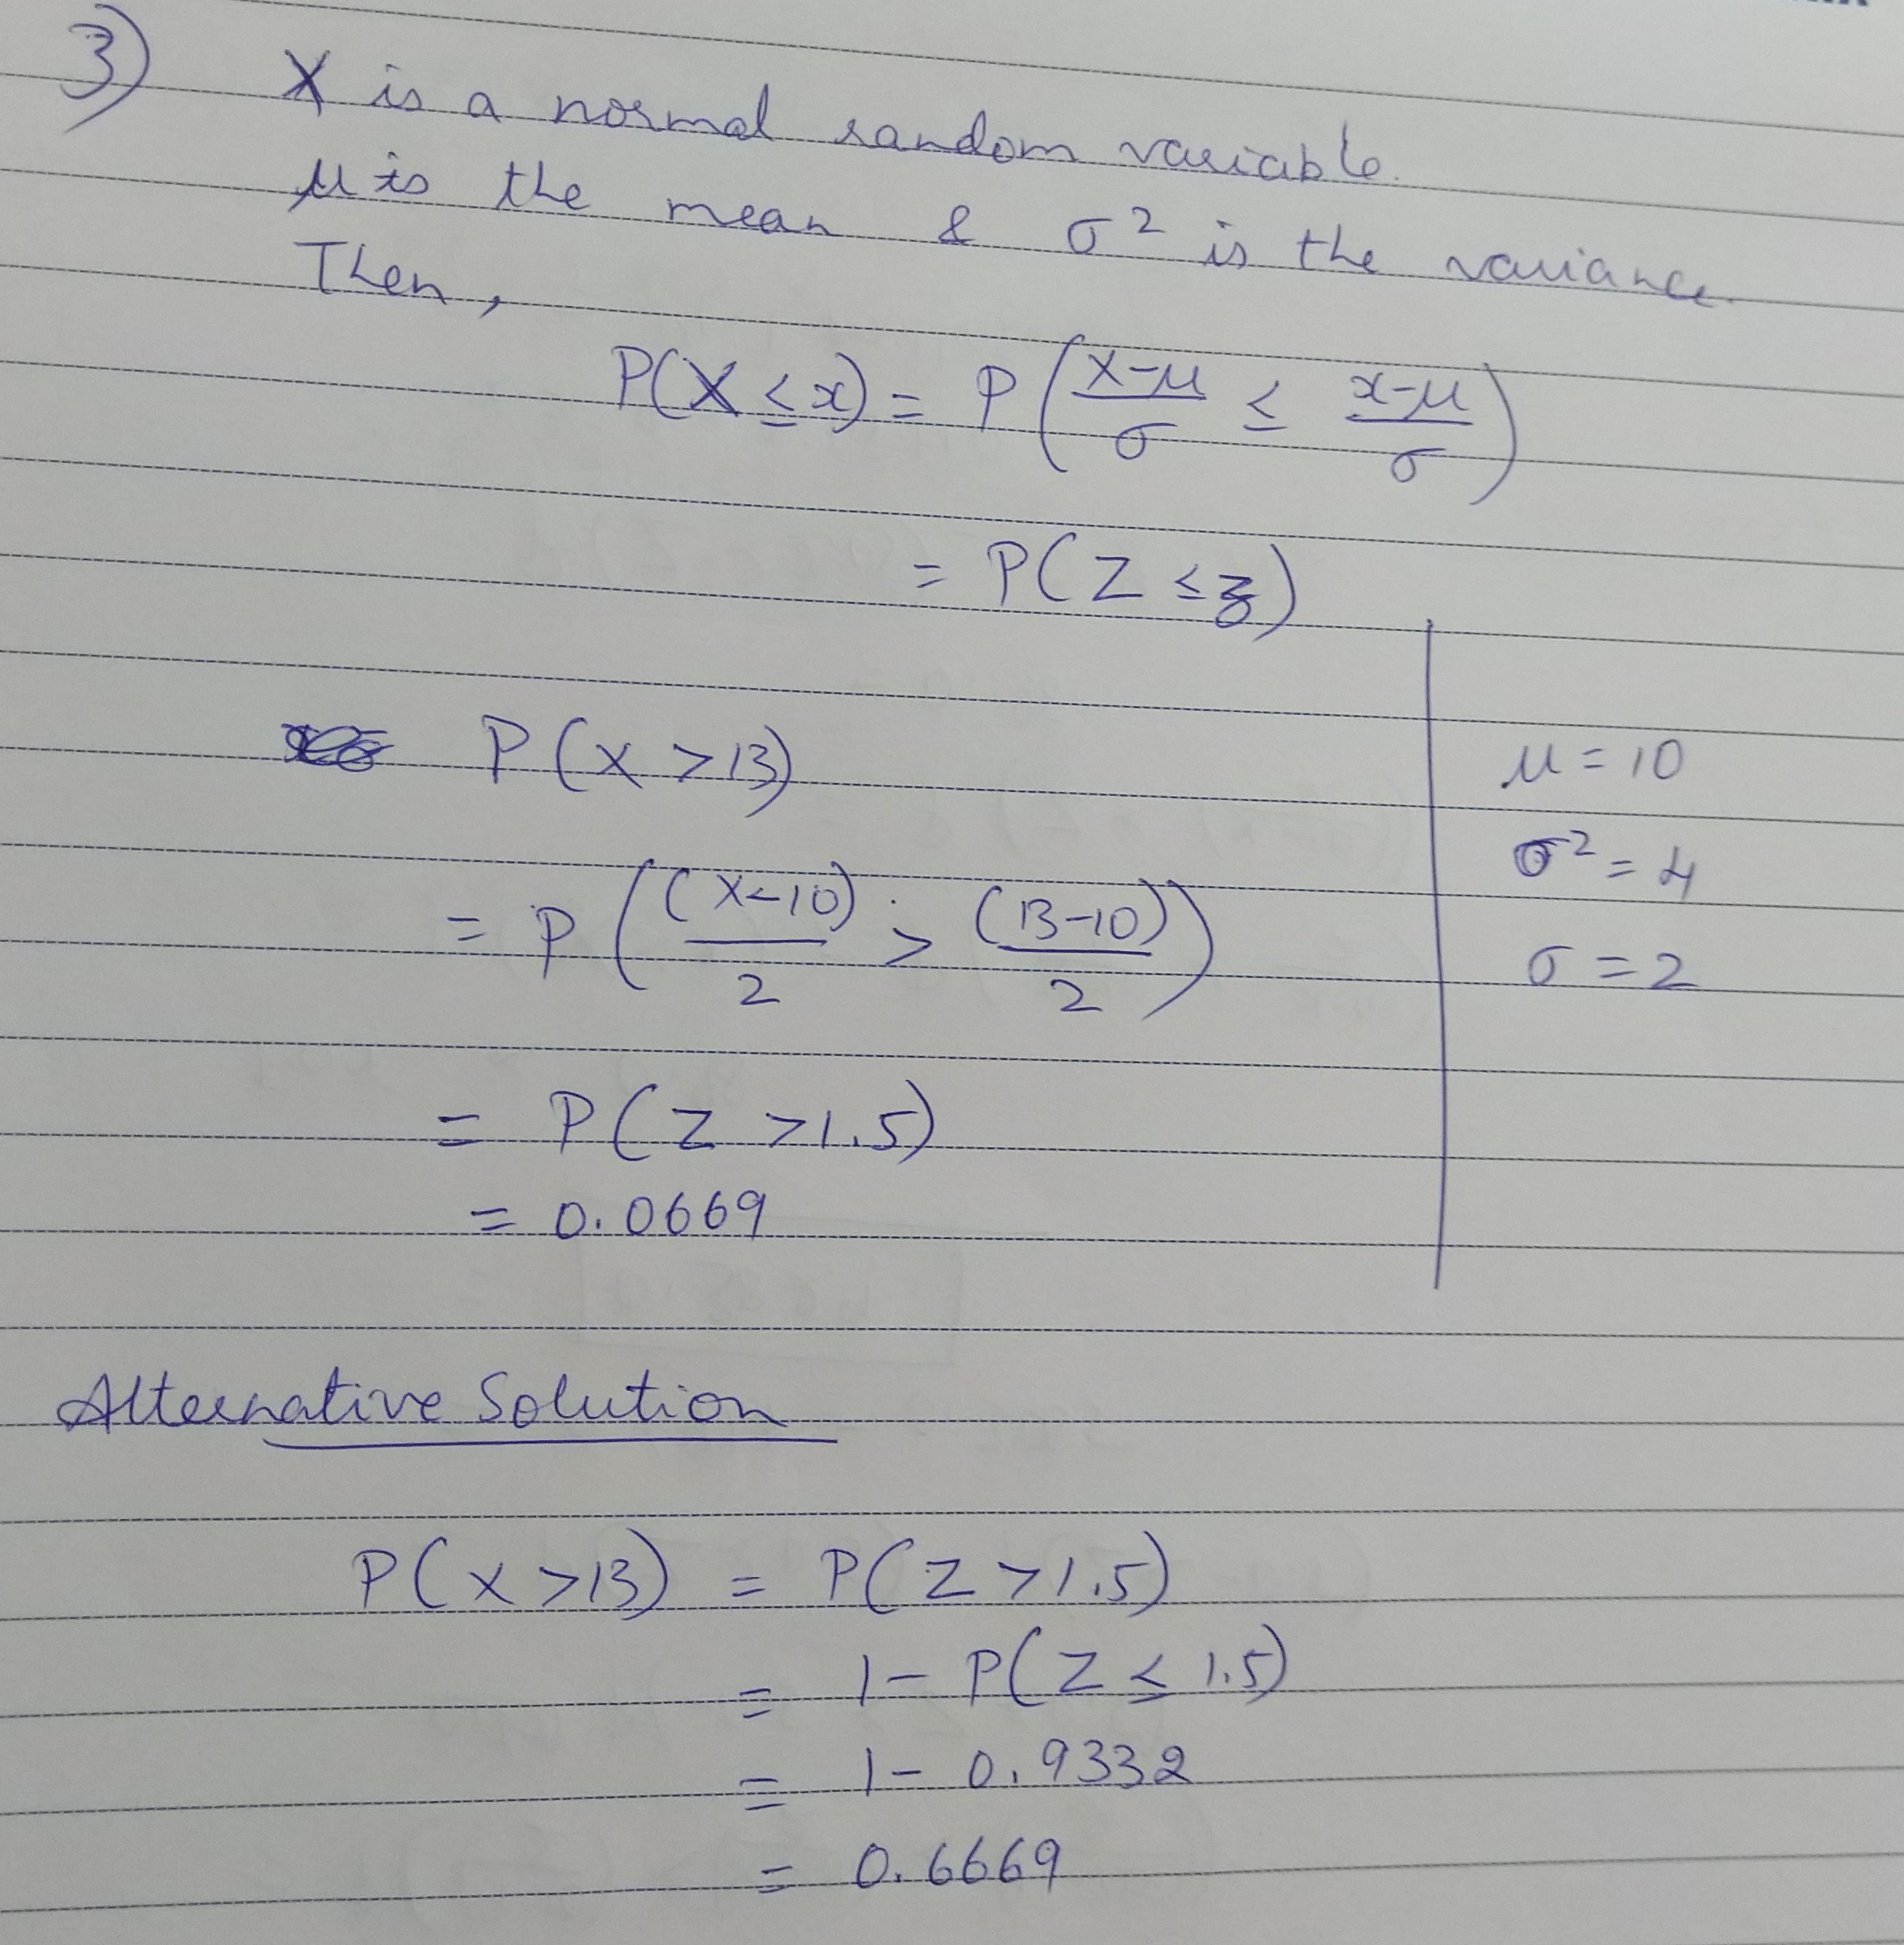 3) X is a normal random variable.
μ is the mean & σ² is the variance.
Then,
P(X ≤ x) = P((X-μ)/σ ≤ (x-μ)/σ)
= P(Z ≤ z)
P(X > 13)
= P((X-10)/2 > (13-10)/2)
= P(Z > 1.5)
= 0.0669
μ = 10
σ² = 4
σ = 2
Alternative Solution
P(X > 13) = P(Z > 1.5)
= 1 - P(Z ≤ 1.5)
= 1 - 0.9332
= 0.6669